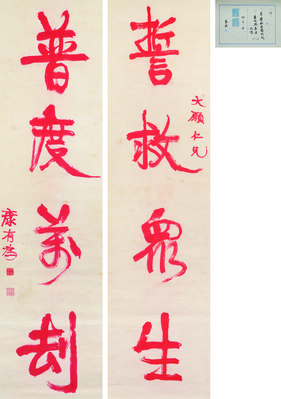 誓救眾生
大願仁兄
普度萬劫
康有為